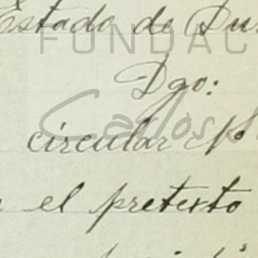 Estado de Du
FUNDAC
Dgo:
Carlos
circular No
el pretexto